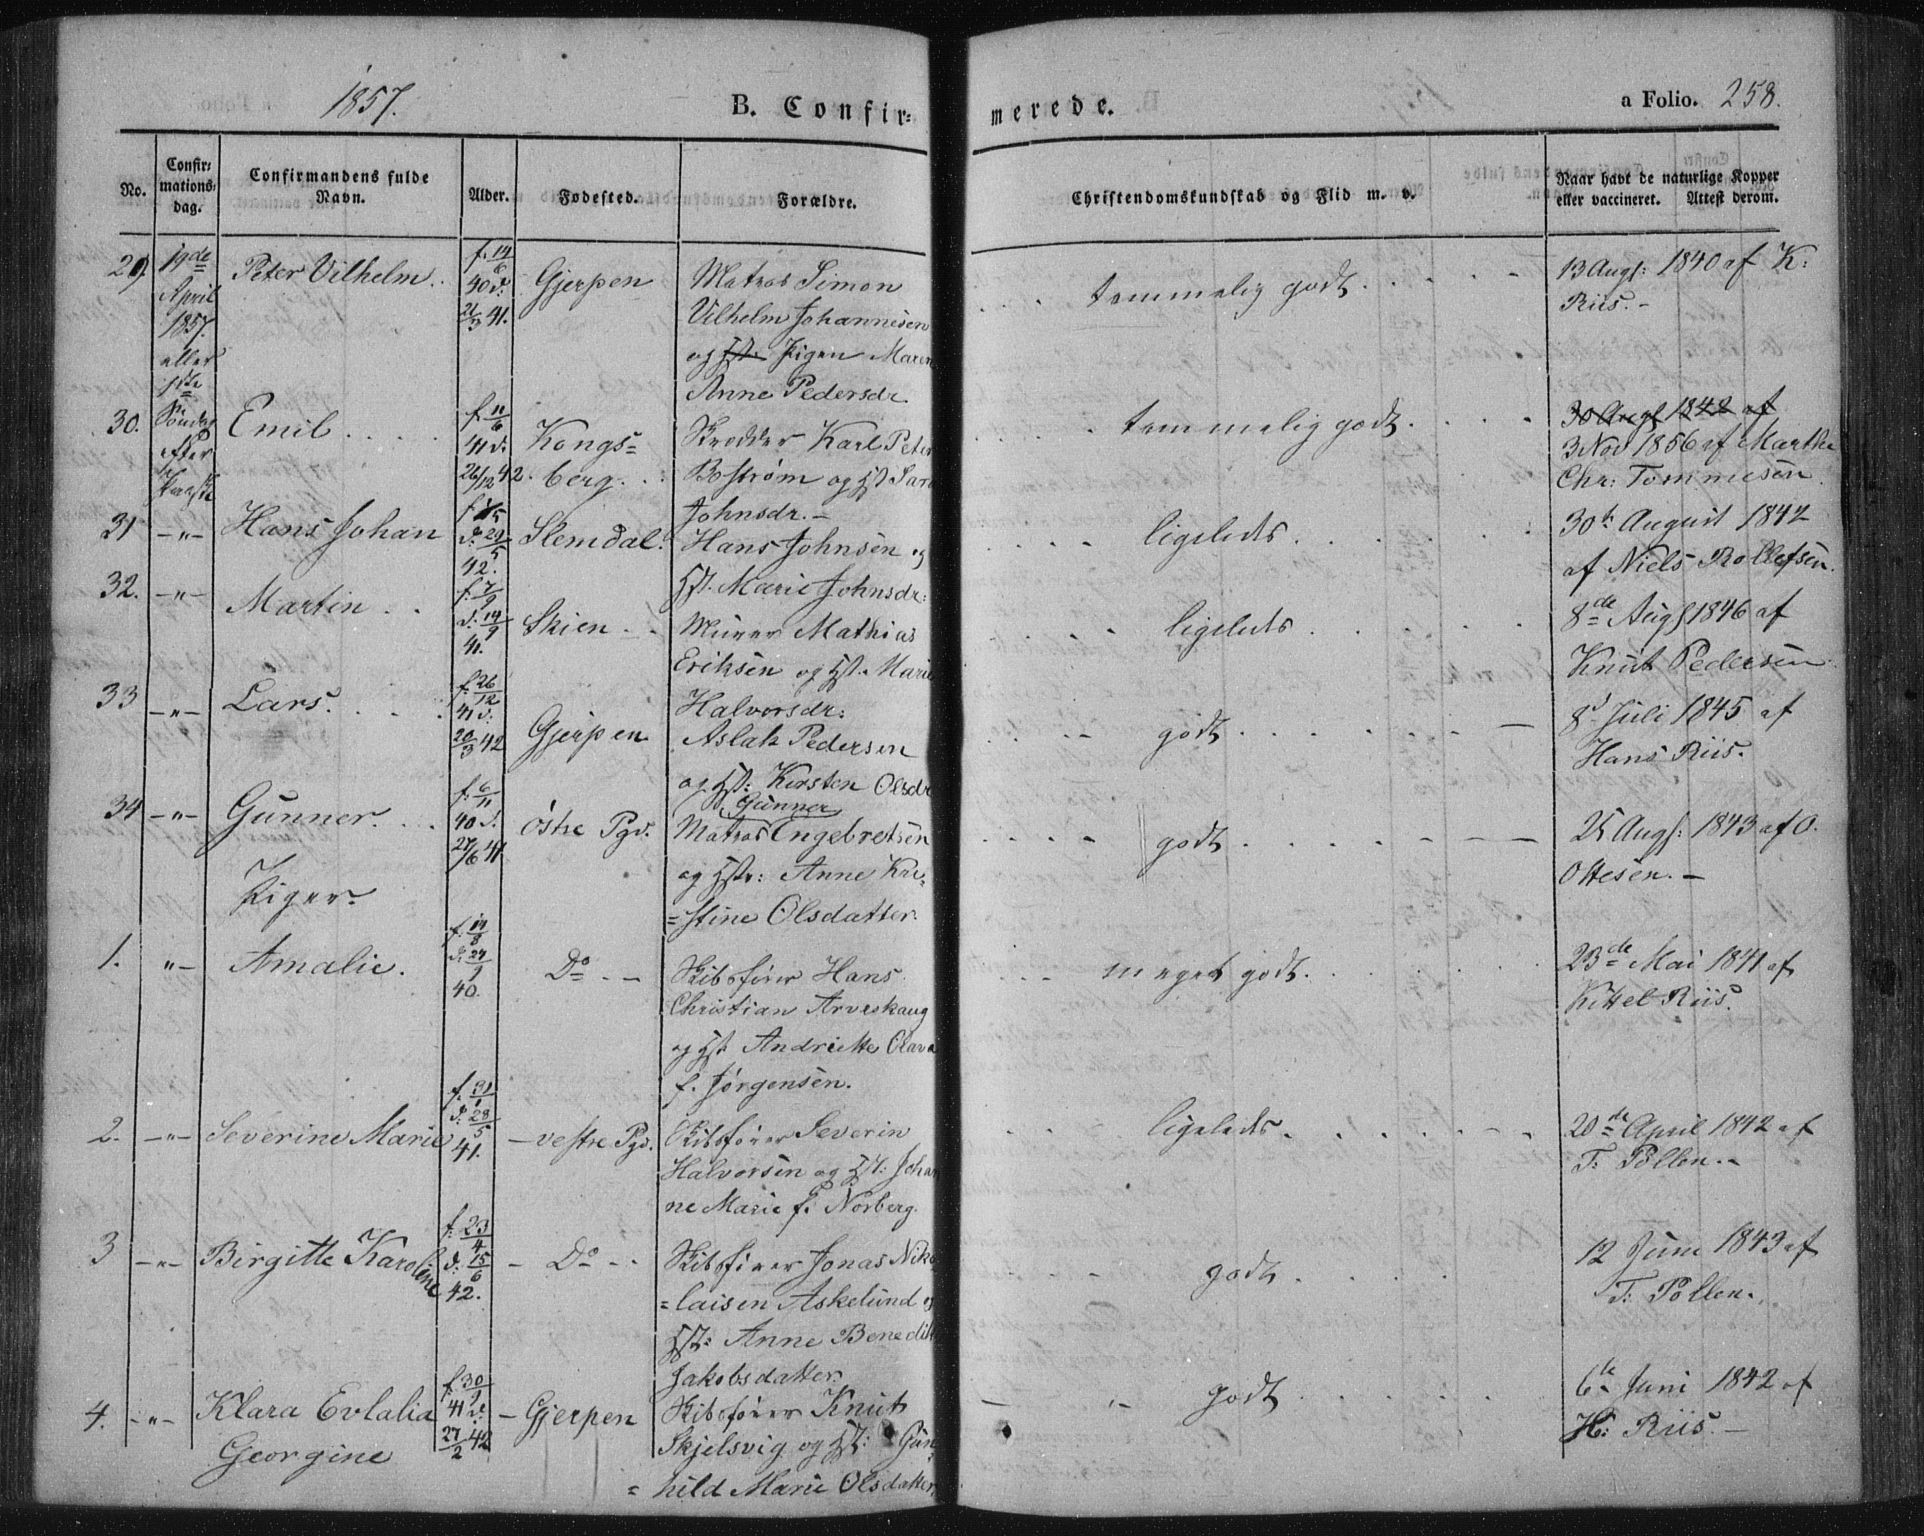 1857.
B. Confir=
merede.
a Folio. 258.
No.
Confir=
mations=
dag.
Confirmandens fulde
Navn.
Alder.
Fødested.
Forældre.
Christendomskundskab og Flid m. v.
Naar havt de naturlige Kopper
eller vaccineret. Attest derom.
29. 19de April 1857. eller 1ste Søndag efter Paaske
Peter Vilhelm.
f. 14/6 40 d. 21/3 41.
Gjerpen
Matros Simon
Vilhelm Johannesen
og Pigen Maren
Anne Pedersdr.
temmelig godt.
13 Augs: 1840 af K:
Riis.
30.
Emil
f. 11/6 41 d. 26/12 42.
Kongs=
berg.
Skrædder Karl Peter
Bostrøm og Hst Sara
Johnsdr.
temmelig godt
30 Augs 1842 af
3 Nov 1856 af Marthe
Chr: Tommesen.
31 -"-
Hans Johan
d. 29/5 42.
Slemdal.
Hans Johnsen og
Hst. Marie Johnsdr:
ligeleds.
30te August 1842
af Niels Rollefsen.
32. -"-
Martin
f. 7/9 d. 19/9 41.
Skien
Murer Mathias
Eriksen og Hst. Marie
Halvorsdr:
ligeleds
8de Augs 1846 af
Knut Pedersen
33 -"-
Lars.
f. 26/12 41 d. 20/3 42
Gjerpen
Aslak Pedersen
og Hst: Kirsten Olsdr
godt
8d Juli 1845 af
Hans Riis.
34 -"-
Gunner.
f. 6/11 40 d. 27/6 41
østre Pgd.
Gunner
Matros Engebretsen
og Hstr: Anne Kri=
=stine Olsdatter.
godt
25 Augs: 1843 af O.
Ottesen.
Piger.
1. "-
Amalie.
f. 19/8 d. 27/9 40.
Do
Skibsfører Hans
Christian Arveskaug
og Hst Andriette Olava
f. Jørgensen.
meget godt.
23de Mai 1841 af
Kittel Riis.
2. -"-
Severine Marie
d. 28/5 41.
vestre Pgd.
Skibsfører Severin
Halvorsen og Hst: Johan
ne Marie f. Norberg.
ligeleds
20de April 1842 af
T: Pollen.
3 -"-
Birgitte Karoline
f. 23/4 d. 15/6 42.
Do
Skibsfører Jonas Niko
=laisen Askelund og
Hst: Anne Benedikte
Jakobsdatter
godt
12 Juni 1843 af
T: Pollen.
4. -"-
Klara Evlalia
Georgine
f. 30/9 41 d. 27/2 42
Gjerpen
Skibsfører Knut
Skjelsvig og Hst: Gun
=hild Marie Olsdatter
godt
6te Juni 1842 af
H: Riis.